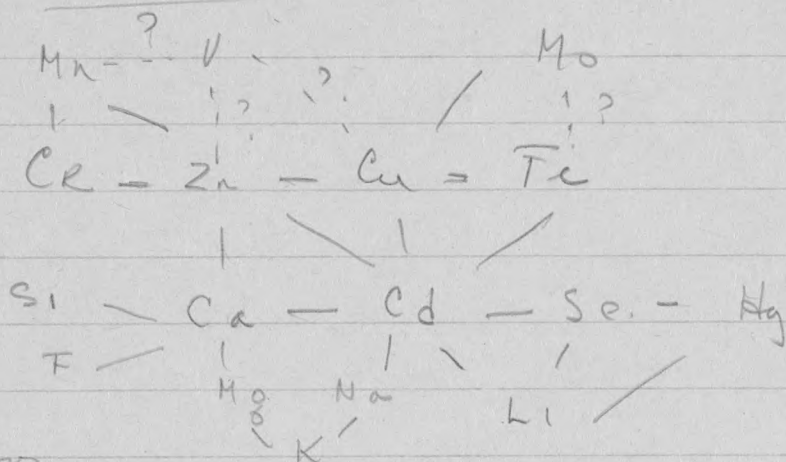 ?
Mn V Mo
? ? ?
CR - Zn - Cu = Fe
Si Ca - Cd - Se - Hg
F
Mg Na Li
K